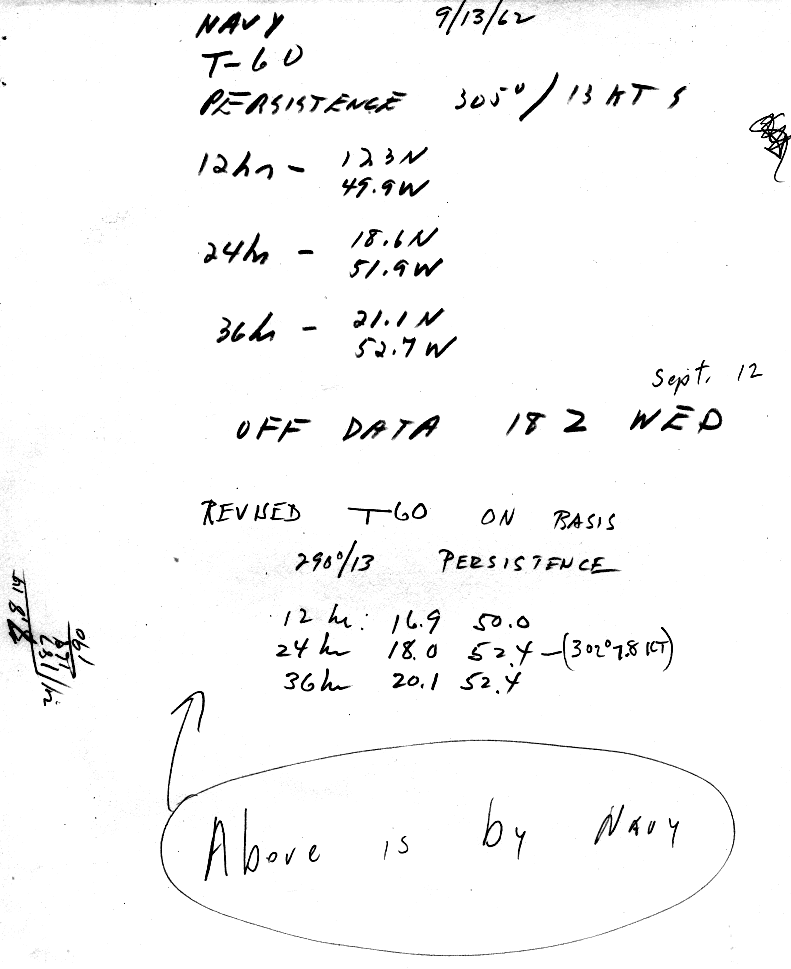 NAVY 9/13/62
T-60
PERSISTENCE 305°/13 KTS
12hr - 17.3N
49.9W
24hr - 18.6N
51.9W
36hr - 21.1N
52.7W
Sept. 12
OFF DATA 18Z WED
REVISED T-60 ON BASIS
290°/13 PERSISTENCE
12 hr: 16.9 50.0
24 hr 18.0 52.4 - (302° 7.8 KT)
36 hr 20.1 52.4
Above is by Navy